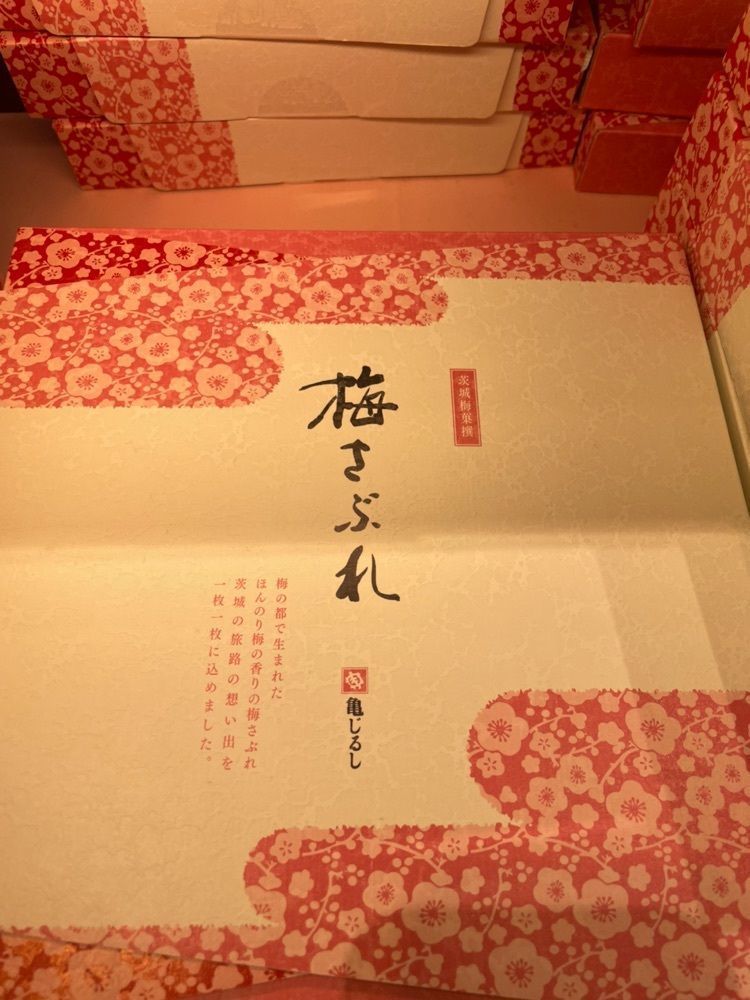 茨城梅菓撰
梅さぶれ
亀じるし
梅の都で生まれた
ほんのり梅の香りの梅さぶれ
茨城の旅路の想い出を
一枚一枚に込めました。